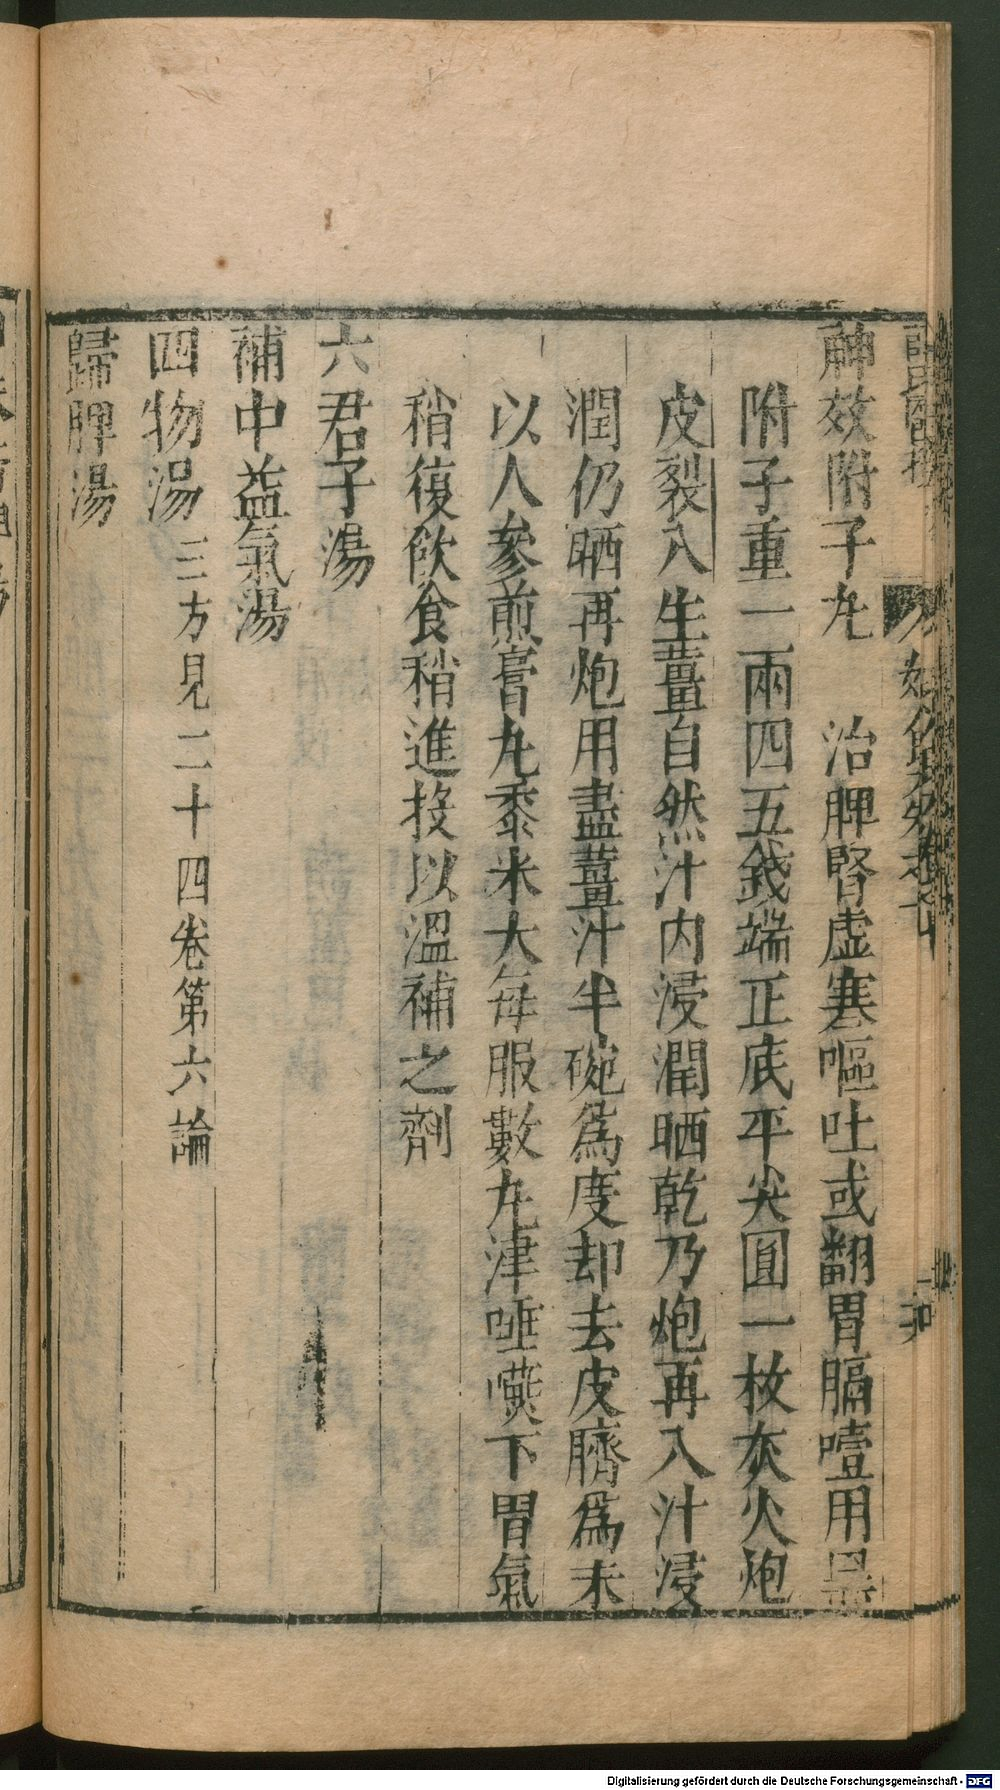 神效附子丸 治脾腎虛寒嘔吐或翻胃膈噎用黑
附子重一兩四五錢端正底平尖圓一枚灰火炮
皮裂入生薑自然汁内浸潤晒乾乃炮再入汁浸
潤仍晒再炮用盡薑汁半碗爲度却去皮臍爲末
以人參煎膏丸黍米大每服數丸津唾嚥下胃氣
稍復飲食稍進投以溫補之劑
六君子湯
補中益氣湯
四物湯 三方見二十四卷第六論
歸脾湯
Digitalisierung gefördert durch die Deutsche Forschungsgemeinschaft - DFG